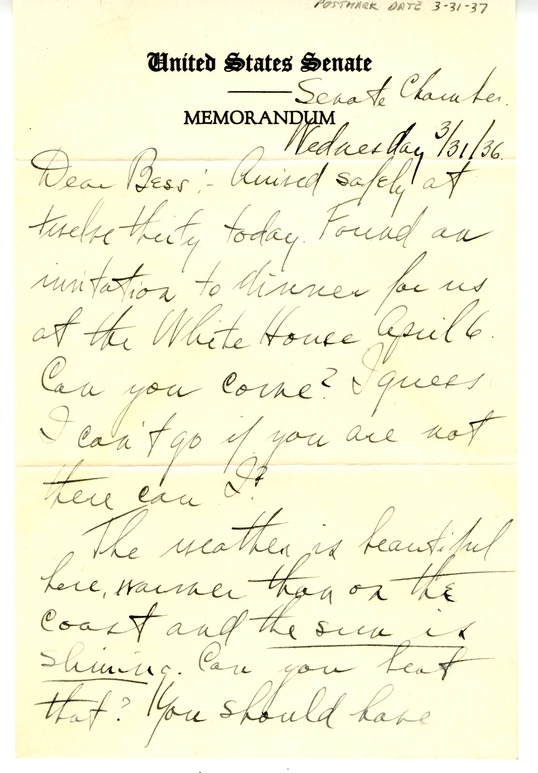 POSTMARK DATE 3-31-37
United States Senate
Senate Chamber.
MEMORANDUM
Wednesday 3/31/36.
Dear Bess:- Arrived safely at
twelve thirty today. Found an
invitation to dinner for us
at the White House April 6.
Can you come? I guess
I can't go if you are not
there can I?
The weather is beautiful
here, warmer than on the
coast and the sun is
shining. Can you beat
that? You should have